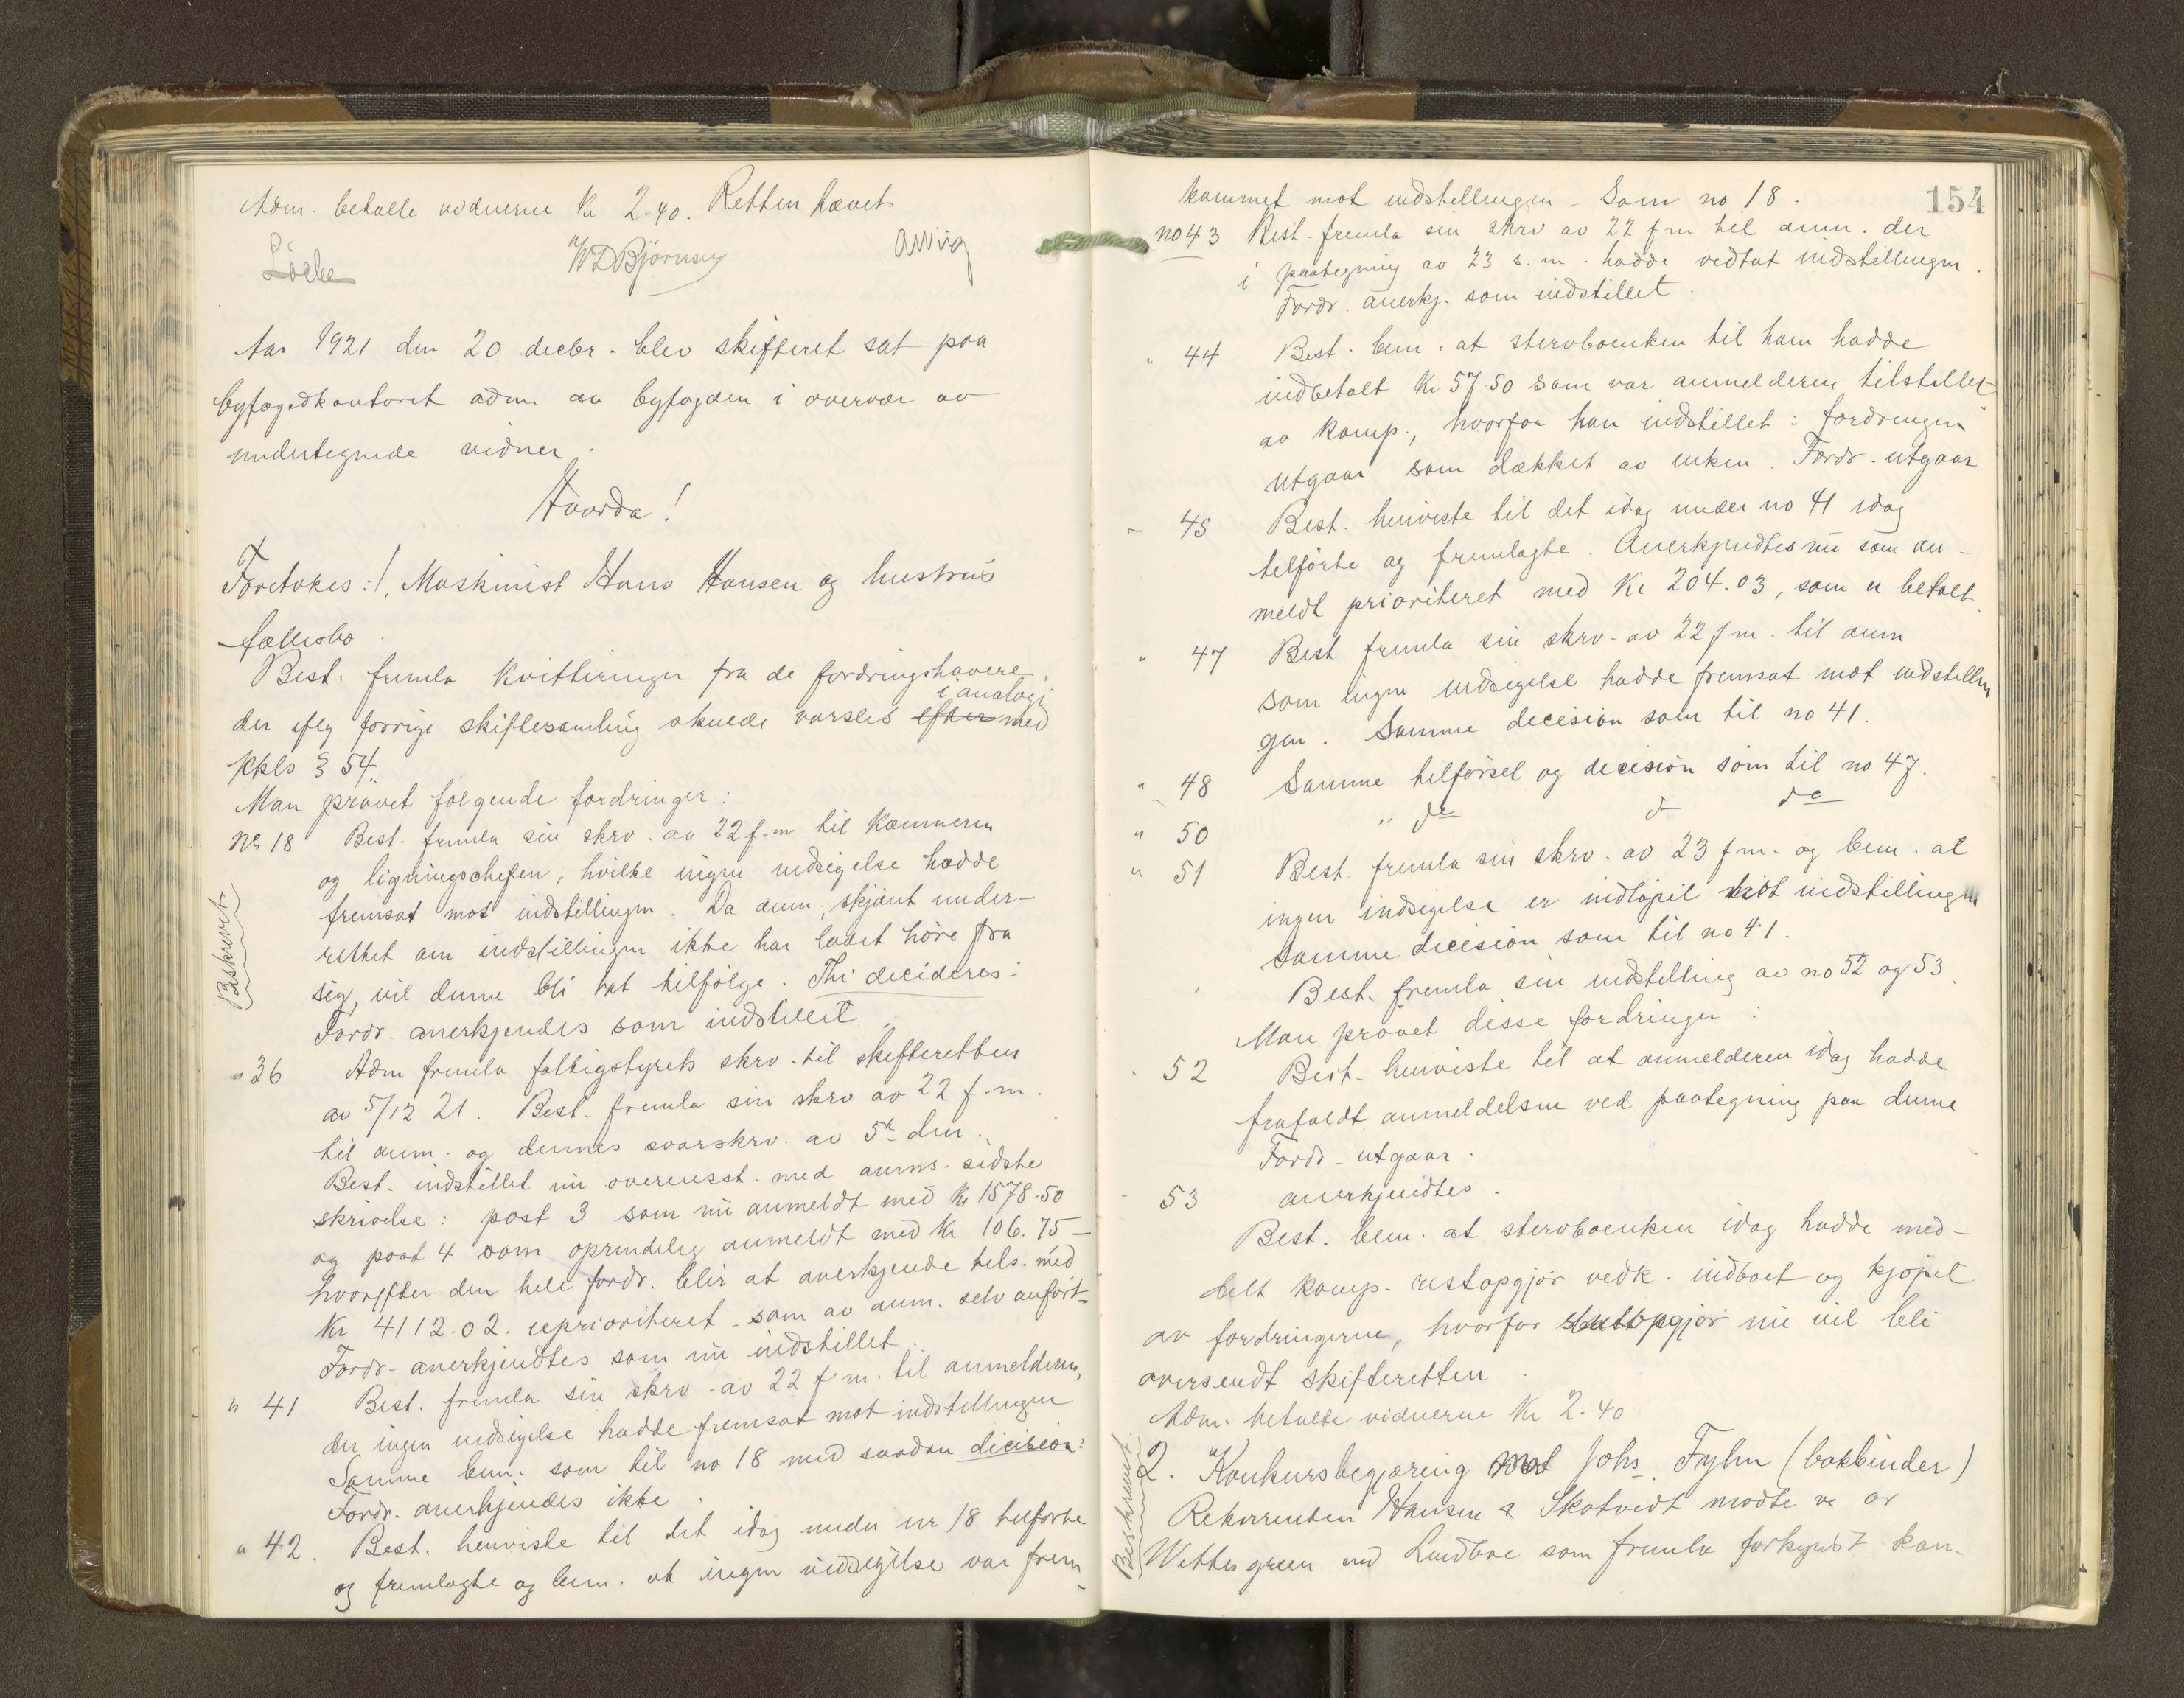 Adm. betalte vidnerne Kr 2.40. Retten hævet
W D Bjørnsen
Aar 1921 den 20 decbr. blev skifteret sat paa
byfogedkontoret adm av byfogden i overvær av
undertegnede vidner.
Hvorda!
Foretokes: 1, Maskinist Hans Hansen og hustrus
fællesbo.
Best. fremla Kvitteringer fra de fordringshavere,
i analogi
der iflg forrige skiftesamling skulde varsles efter med
kkls § 54.
Man prøvet følgende fordringer:
No 18 Best. fremla sin skrv. av 22 f.m til Kæmneren
og ligningschefen, hvilke ingen indsigelse hadde
fremsat mot indstillingen. Da anm., skjønt under-
rettet om indstillingen ikke har ladet høre fra
sig, vil denne bli tat tilfølge. Thi decideres:
Fordr. anerkjendes som indstillet.
Beskrevet
" 36 Adm fremla fattigstyrets skrv. til skifteretten
av 5/12 21. Best. fremla sin skrv av 22 f.m.
til anm. og dennes svarskrv. av 5te dm.
Best. indstillet nu overensst. med anms. sidste
skrivelse: post 3 som nu anmeldt med Kr 1578.50
og post 4 som oprindelig anmeldt med Kr 106.75 -
hvorefter den hele fordr. blir at anerkjende tils. med
Kr 4112.02. uprioritert - som av anm. selv anført.
Fordr. anerkjendtes som nu indstillet.
" 41 Best. fremla sin skrv. av 22 f.m. til anmelderen,
der ingen indsigelse hadde fremsat mot indstillingen
Samme bem. som til no 18 med saadan decision:
Fordr. anerkjendes ikke.
" 42. Best. henviste til det idag under nr 18 tilførte
og fremlagte og bem. at ingen indsigelse var frem-
154
kommet mot indstillingen - Som no 18.
no 43 Best. fremla sin skrv av 22 f m til anm. der
i paategning av 23 s.m. hadde vedtat indstillingen.
Fordr. anerkj. som indstillet.
" 44 Best. bem. at stervboenken til ham hadde
indbetalt Kr 57.50 som var anmelderen tilstillet
av komp., hvorfor han indstillet: fordringen
utgaar som dækket av enken. Fordr. utgaar
" 45 Best. henviste til det idag under no 41 idag
tilførte og fremlagte. Anerkjendtes nu som an-
meldt prioriteret med Kr 204.03, som er betalt.
" 47 Best. fremla sin skrv. av 22 f m. til anm
som ingen indsigelse hadde fremsat mot indstillin
gen. Samme decision som til no 41.
" 48 Samme tilførsel og decision som til no 47.
" 50 " do do do
" 51 Best. fremla sin skrv. av 23 f m. og bem. at
ingen indsigelse er indløpet mot indstillingen
Samme decision som til no 41.
Best. fremla sin indstilling av no 52 og 53.
Man prøvet disse fordringer:
" 52 Best. henviste til at anmelderen idag hadde
frafaldt anmeldelsen ved paategning paa denne
Fordr. utgaar.
" 53 anerkjendtes.
Best. bem. at stervboenken idag hadde med-
delt komp. restopgjør vedk. indboet og kjøpet
av fordringerne, hvorfor sluttopgjør nu vil bli
oversendt skifteretten.
Adm. betalte vidnerne Kr 2.40
2. Konkursbegjæring mot Johs. Fylm (bokbinder)
Rekvirenten Hansen & Skotvedt møtte ved or
Wettergreen ved Lundboe som fremla forkyndt kon-
Beskrevet